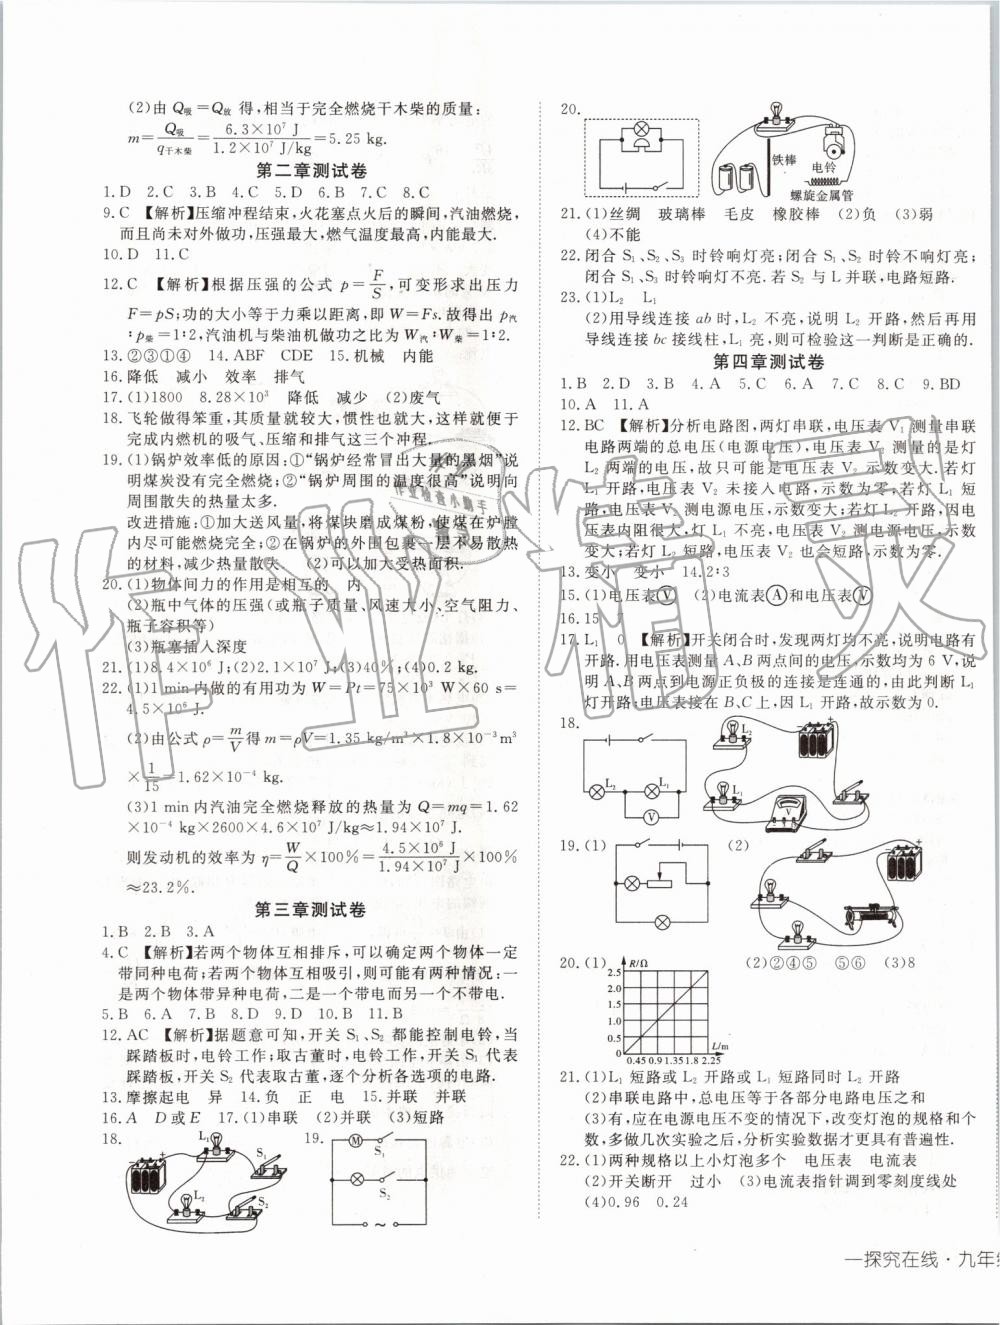 (2)由 Q吸=Q放 得,相当于完全燃烧干木柴的质量:
m=Q吸/q干木柴=6.3×10⁷ J/1.2×10⁷ J/kg=5.25 kg.
第二章测试卷
1.D 2.C 3.B 4.C 5.D 6.B 7.C 8.C
9.C 【解析】压缩冲程结束,火花塞点火后的瞬间,汽油燃烧,
而且尚未对外做功,压强最大,燃气温度最高,内能最大.
10.D 11.C
12.C 【解析】根据压强的公式 p=F/S,可变形求出压力
F=pS;功的大小等于力乘以距离,即 W=Fs.故得出 p汽
:p柴=1:2,汽油机与柴油机做功之比为 W汽:W柴=1:2.
13.②③①④ 14.ABF CDE 15.机械 内能
16.降低 减小 效率 排气
17.(1)1800 8.28×10³ 降低 减少 (2)废气
18.飞轮做得笨重,其质量就较大,惯性也就大,这样就便于
完成内燃机的吸气、压缩和排气这三个冲程.
19.(1)锅炉效率低的原因:①“锅炉经常冒出大量的黑烟”说
明煤炭没有完全燃烧;②“锅炉周围的温度很高”说明向
周围散失的热量太多.
改进措施:①加大送风量,将煤块磨成煤粉,使煤在炉膛
内尽可能燃烧完全;②在锅炉的外围包裹一层不易散热
的材料,减少热量散失. (2)可以加大受热面积.
20.(1)物体间力的作用是相互的 内
(2)瓶中气体的压强(或瓶子质量、风速大小、空气阻力、
瓶子容积等)
(3)瓶塞插入深度
21.(1)8.4×10⁶ J;(2)2.1×10⁷ J;(3)40%;(4)0.2 kg.
22.(1)1 min内做的有用功为 W=Pt=75×10³ W×60 s=
4.5×10⁶ J.
(2)由公式 ρ=m/V得 m=ρV=1.35 kg/m³×1.8×10⁻³m³
×1/15=1.62×10⁻⁴ kg.
(3)1 min内汽油完全燃烧释放的热量为 Q=mq=1.62
×10⁻⁴ kg×2600×4.6×10⁷ J/kg≈1.94×10⁷ J.
则发动机的效率为 η=W/Q×100%=4.5×10⁶ J/1.94×10⁷ J×100%
≈23.2%.
第三章测试卷
1.B 2.B 3.A
4.C 【解析】若两个物体互相排斥,可以确定两个物体一定
带同种电荷;若两个物体相互吸引,则可能有两种情况:一
是两个物体带异种电荷,二是一个带电而另一个不带电.
5.B 6.A 7.B 8.D 9.D 10.B 11.B
12.AC 【解析】据题意可知,开关 S₁、S₂ 都能控制电铃,当
踩踏板时,电铃工作;取古董时,电铃工作.开关 S₁ 代表
踩踏板,开关 S₂ 代表取古董,逐个分析各选项的电路.
13.摩擦起电 异 14.负 正 电 15.并联 并联
16.A D或E 17.(1)串联 (2)并联 (3)短路
18.
L₁ S₁ L₂ S₂
19.
M S₁ S₂
20.
铁棒 电铃
螺旋金属管
21.(1)丝绸 玻璃棒 毛皮 橡胶棒 (2)负 (3)弱
(4)不能
22.闭合 S₁、S₂、S₃ 时铃响灯亮;闭合 S₁、S₂ 时铃不响灯亮;
闭合 S₁、S₃ 时铃响灯不亮.若 S₂ 与 L 并联,电路短路.
23.(1)L₂ L₁
(2)用导线连接 ab 时,L₂ 不亮,说明 L₂ 开路,然后再用
导线连接 bc 接线柱,L₁ 亮,则可检验这一判断是正确的.
第四章测试卷
1.B 2.D 3.B 4.A 5.C 6.A 7.C 8.C 9.BD
10.A 11.A
12.BC 【解析】分析电路图,两灯串联,电压表 V₁ 测量串联
电路两端的总电压(电源电压),电压表 V₂ 测量的是灯
L₂ 两端的电压,故只可能是电压表 V₂ 示数变大.若灯
L₁ 开路,电压表 V₂ 未接入电路,示数变零;若灯 L₁ 短
路,电压表 V₂ 测电源电压,示数变大;若灯 L₂ 开路,因电
压表内阻很大,灯 L₁ 不亮,电压表 V₂ 测电源电压,示数
变大;若灯 L₂ 短路,电压表 V₂ 也会短路,示数为零.
13.变小 变小 14.2:3
15.(1)电压表Ⓥ (2)电流表Ⓐ和电压表Ⓥ
16.15 7
17.L₁ 0 【解析】开关闭合时,发现两灯均不亮,说明电路有
开路.用电压表测量 A、B 两点间的电压,示数均为 6 V,说
明 A、B 两点到电源正负极的连接是连通的,由此判断 L₁
灯开路;电压表接在 B、C 上,因 L₁ 开路,故示数为 0.
18.
L₂ L₁ V
L₂ L₁ V
19.(1) (2)
20.(1) (2)②④⑤ ⑤⑥ (3)8
R/Ω
2.5
2.0
1.5
1.0
0.5
0
L/m
0.45 0.9 1.35 1.8 2.25
21.(1)L₁ 短路或 L₂ 开路或 L₁ 短路同时 L₂ 开路
(2)串联电路中,总电压等于各部分电路电压之和
(3)有,应在电源电压不变的情况下,改变灯泡的规格和个
数,多做几次实验之后,分析实验数据才更具有普遍性.
22.(1)两种规格以上小灯泡多个 电压表 电流表
(2)开关断开 过小 (3)电流表指针调到零刻度线处
(4)0.96 0.24
一探究在线·九年级
作业精灵
作业检查小助手